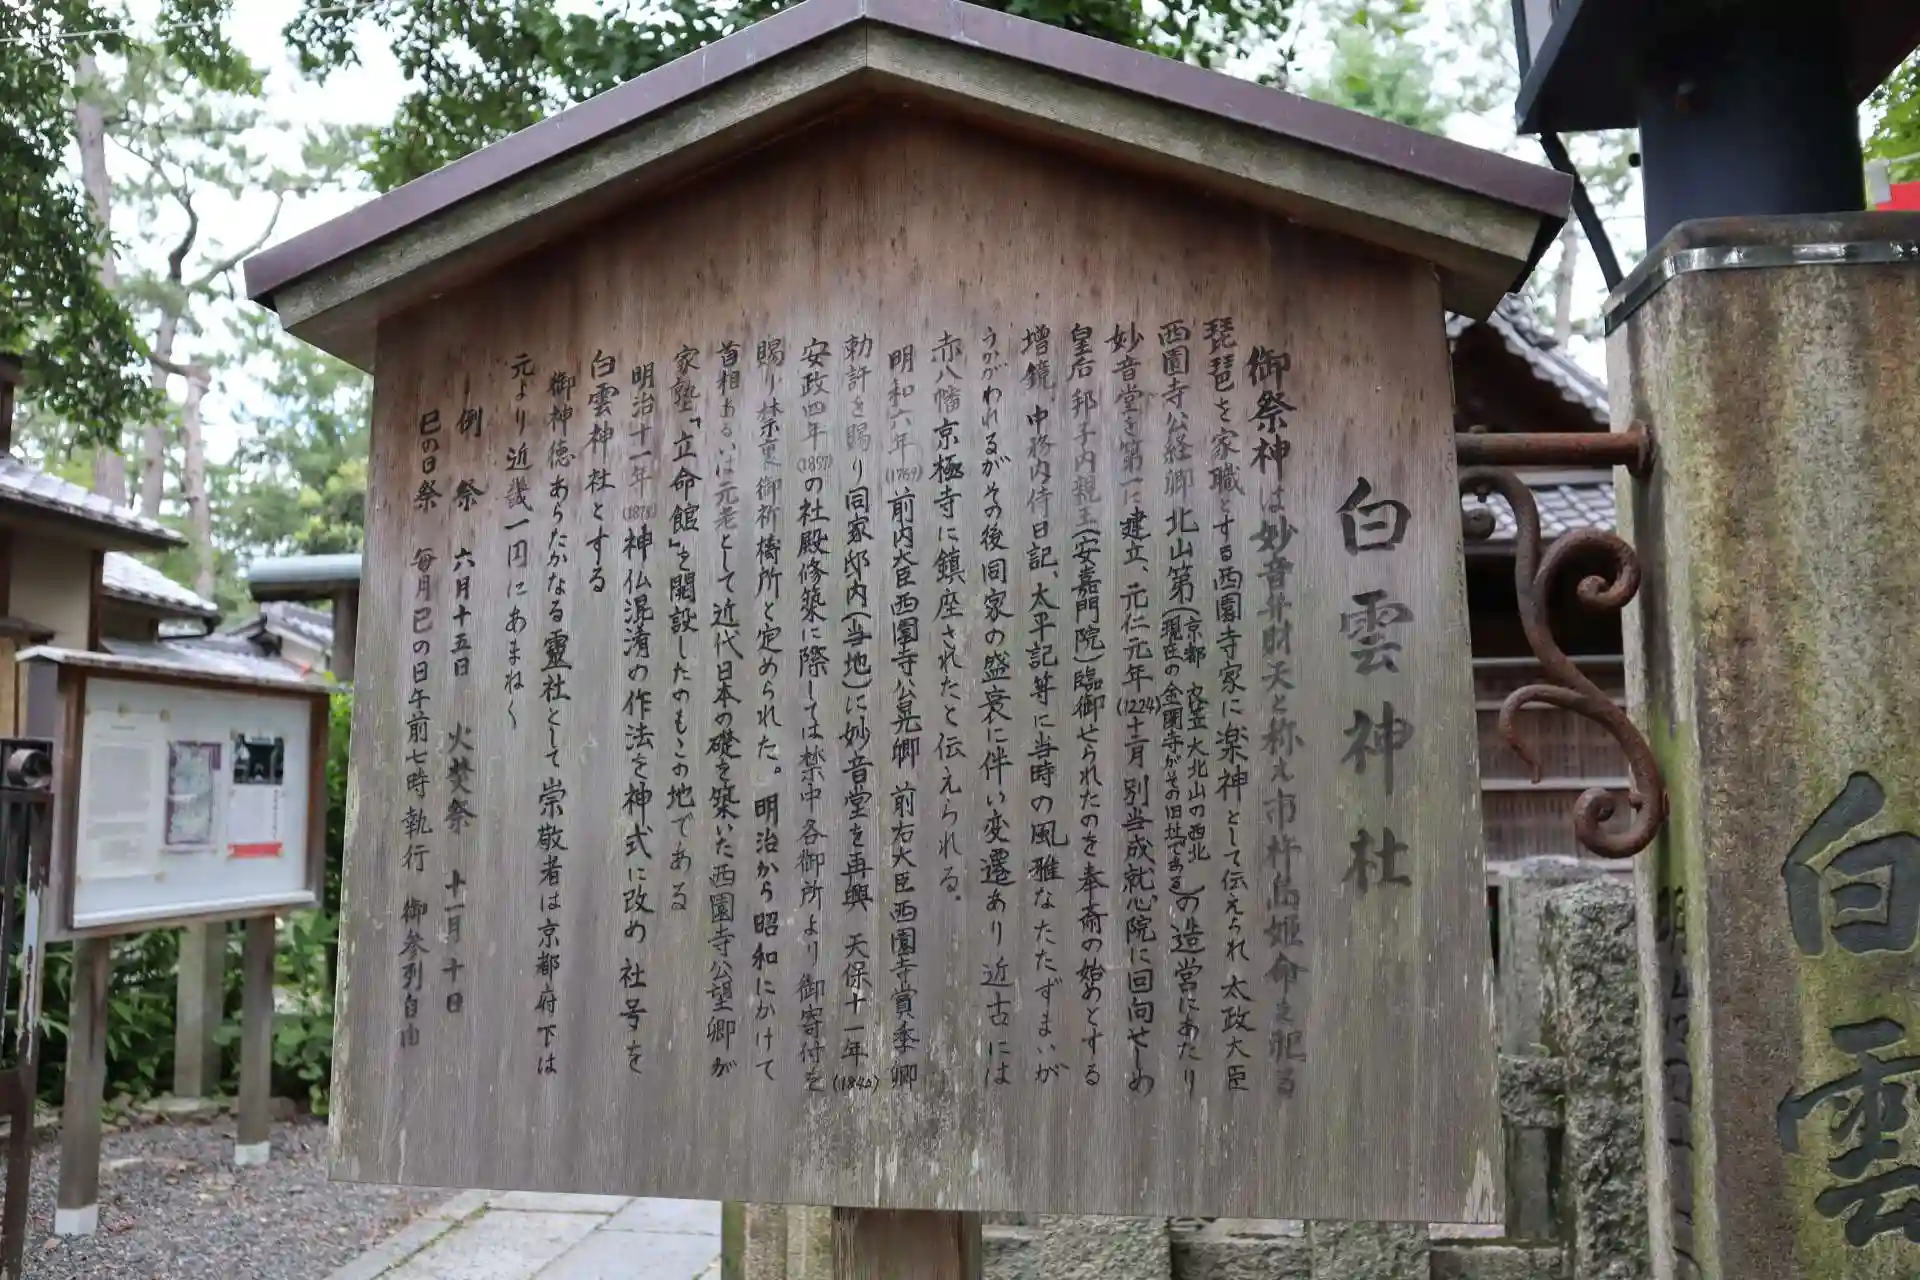 白雲神社
御祭神は妙音弁財天と称え市杵島姫命を祀る
琵琶を家職とする西園寺家に楽神として伝えられ 太政大臣
西園寺公経卿 北山第(京都 衣笠 大北山の西北
現在の金閣寺がその旧址である)の造営にあたり
妙音堂を第一に建立、元仁元年(1224)十二月 別当成就心院に回向せしめ
皇后 邦子内親王(安嘉門院)臨御せられたのを奉斎の始めとする
増鏡、中務内侍日記、太平記等に当時の風雅なたたずまいが
うかがわれるがその後同家の盛衰に伴い変遷あり 近古には
赤八幡京極寺に鎮座されたと伝えられる。
明和六年(1769)前内大臣西園寺公晃卿 前右大臣西園寺賞季卿
勅許を賜り 同家邸内(当地)に妙音堂を再興 天保十一年(1840)
安政四年(1857)の社殿修築に際しては禁中各御所より 御寄付を
賜り 禁裏御祈祷所と定められた。明治から昭和にかけて
首相あるいは元老として近代日本の礎を築いた西園寺公望卿が
家塾「立命館」を開設したのもこの地である
明治十一年(1878)神仏混淆の作法を神式に改め 社号を
白雲神社とする
御神徳あらたかなる霊社として 崇敬者は京都府下は
元より近畿一円にあまねく
例 祭 六月十五日 火焚祭 十一月十日
巳の日祭 毎月巳の日午前七時執行 御参列自由
白雲